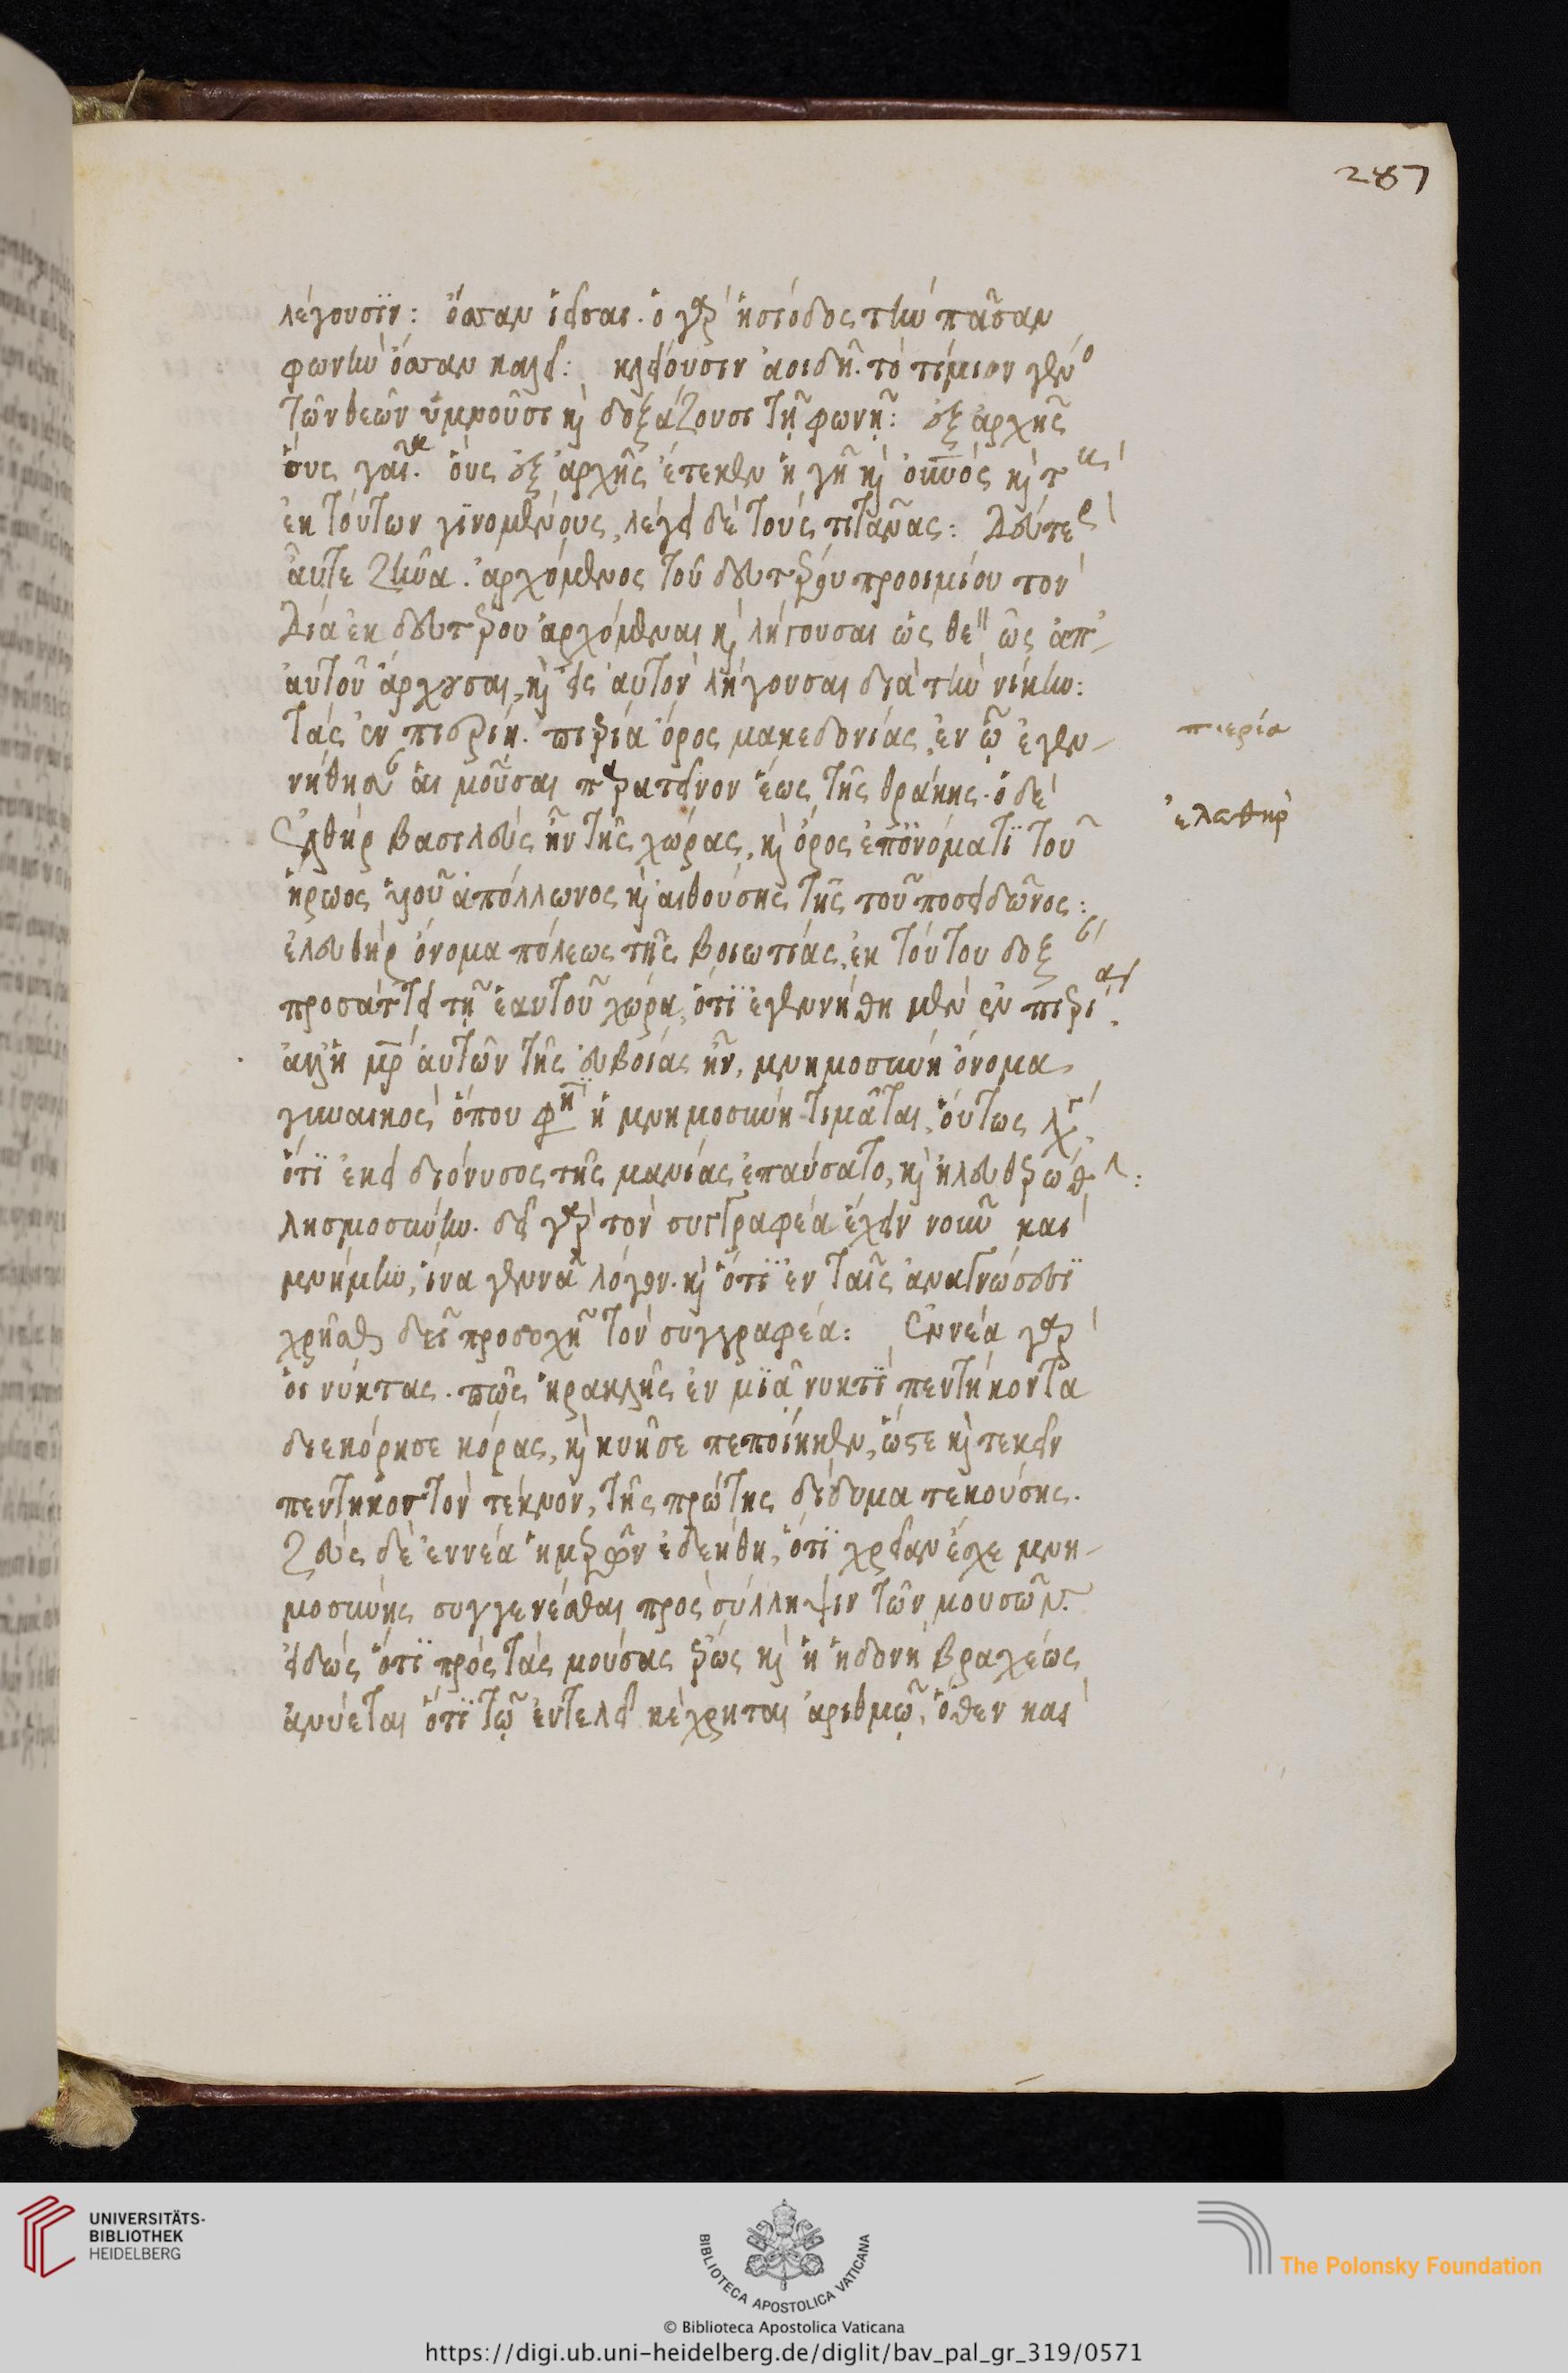 287
λέγουσιν: ὄσσαν ἱεῖσαι. ὁ γὰρ ἡσίοδος τὴν πᾶσαν
φωνὴν ὄσσαν καλεῖ: κλείουσιν ἀοιδῆ. τὸ τίμιον γένο
τῶν θεῶν ὑμνοῦσι καὶ δοξάζουσι τῇ φωνῇ: ἐξ ἀρχῆς
οὓς γαῖα. οὓς ἐξ ἀρχῆς ἔτεκεν ἡ γῆ καὶ οὐνὸς καὶ τοὺς
ἐκ τούτων γϊνομένους, λέγει δὲ τοὺς τιτᾶνας: Δεύτερ
αὖτε ζῆνα. ἀρχόμενος τοῦ δευτέρου προοιμίου τὸν
Δία ἐκ δευτέρου ἀρχόμεναι καὶ λήγουσαι ὡς θε ὡς ἀπ'
αὐτοῦ ἄρχουσαι, καὶ εἰς αὐτὸν λήγουσαι διὰ τὴν νίκην:
τὰς ἐν πιερίη. πιερία ὄρος μακεδονίας, ἐν ᾧ ἐγεν-
πιερία
νήθησαν αἱ μοῦσαι παρατεῖνον ἕως τῆς θράκης. ὁ δὲ
Ἐλευθὴρ βασιλεὺς ἦν τῆς χώρας, καὶ ὄρος ἐπὀνόματϊ τοῦ
ἐλευθηρ
ἥρωος υἱοῦ ἀπόλλωνος καὶ αἰθούσης τῆς τοῦ ποσειδῶνος:
ἐλευθὴρ ὄνομα πόλεως τῆς βοιωτίας, ἐκ τούτου δοξ
προσάπτει τῇ ἑαυτοῦ χώρα, ὅτϊ ἐγεννήθη μὲν ἐν πιερίᾳ.
ἀλλ' ἡ μρ αὐτῶν τῆς εὐβοίας ἦν, μνημοσύνη ὄνομα
γυναικὸς ὅπου φη ἡ μνημοσύνη τιμᾶται, οὕτως λέγ
ὅτϊ ἐκεῖ διόνυσος τῆς μανίας ἐπαύσατο, καὶ ἠλευθερώθη:
λησμοσύνην. δεῖ γὰρ τὸν συγγραφέα ἔχειν νοῦν καὶ
μνήμην, ἵνα γεννᾷ λόγον. καὶ ὅτϊ ἐν ταῖς ἀναγνώσεσϊ
χρῆσθαι δεῖ προσοχῆ τὸν συγγραφέα: Ἐννέα γὰρ
οἱ νύκτας. πῶς ἡρακλῆς ἐν μϊᾷ νυκτϊ πεντήκοντα
διεκόρησε κόρας, καὶ κυῆσε πεποίηκεν, ὥστε καὶ τεκεῖν
πεντηκοντον τέκνον, τῆς πρώτης δίδυμα τεκούσης.
Ζεὺς δὲ ἐννέα ἡμερῶν ἐδεήθη, ὅτϊ χρείαν ἔσχε μνη-
μοσύνης συγγενέσθαι πρὸς σύλληψιν τῶν μουσῶν.
εἰδὼς ὅτϊ πρὸς τὰς μούσας ἔρως καὶ ἡ ἡδονὴ βραχέως
ἀνύεται ὅτϊ τῷ ἐντελεῖ κέχρηται ἀριθμῷ, ὅθεν καὶ
UNIVERSITÄTS-
BIBLIOTHEK
HEIDELBERG
BIBLIOTECA APOSTOLICA VATICANA
The Polonsky Foundation
© Biblioteca Apostolica Vaticana
https://digi.ub.uni-heidelberg.de/diglit/bav_pal_gr_319/0571